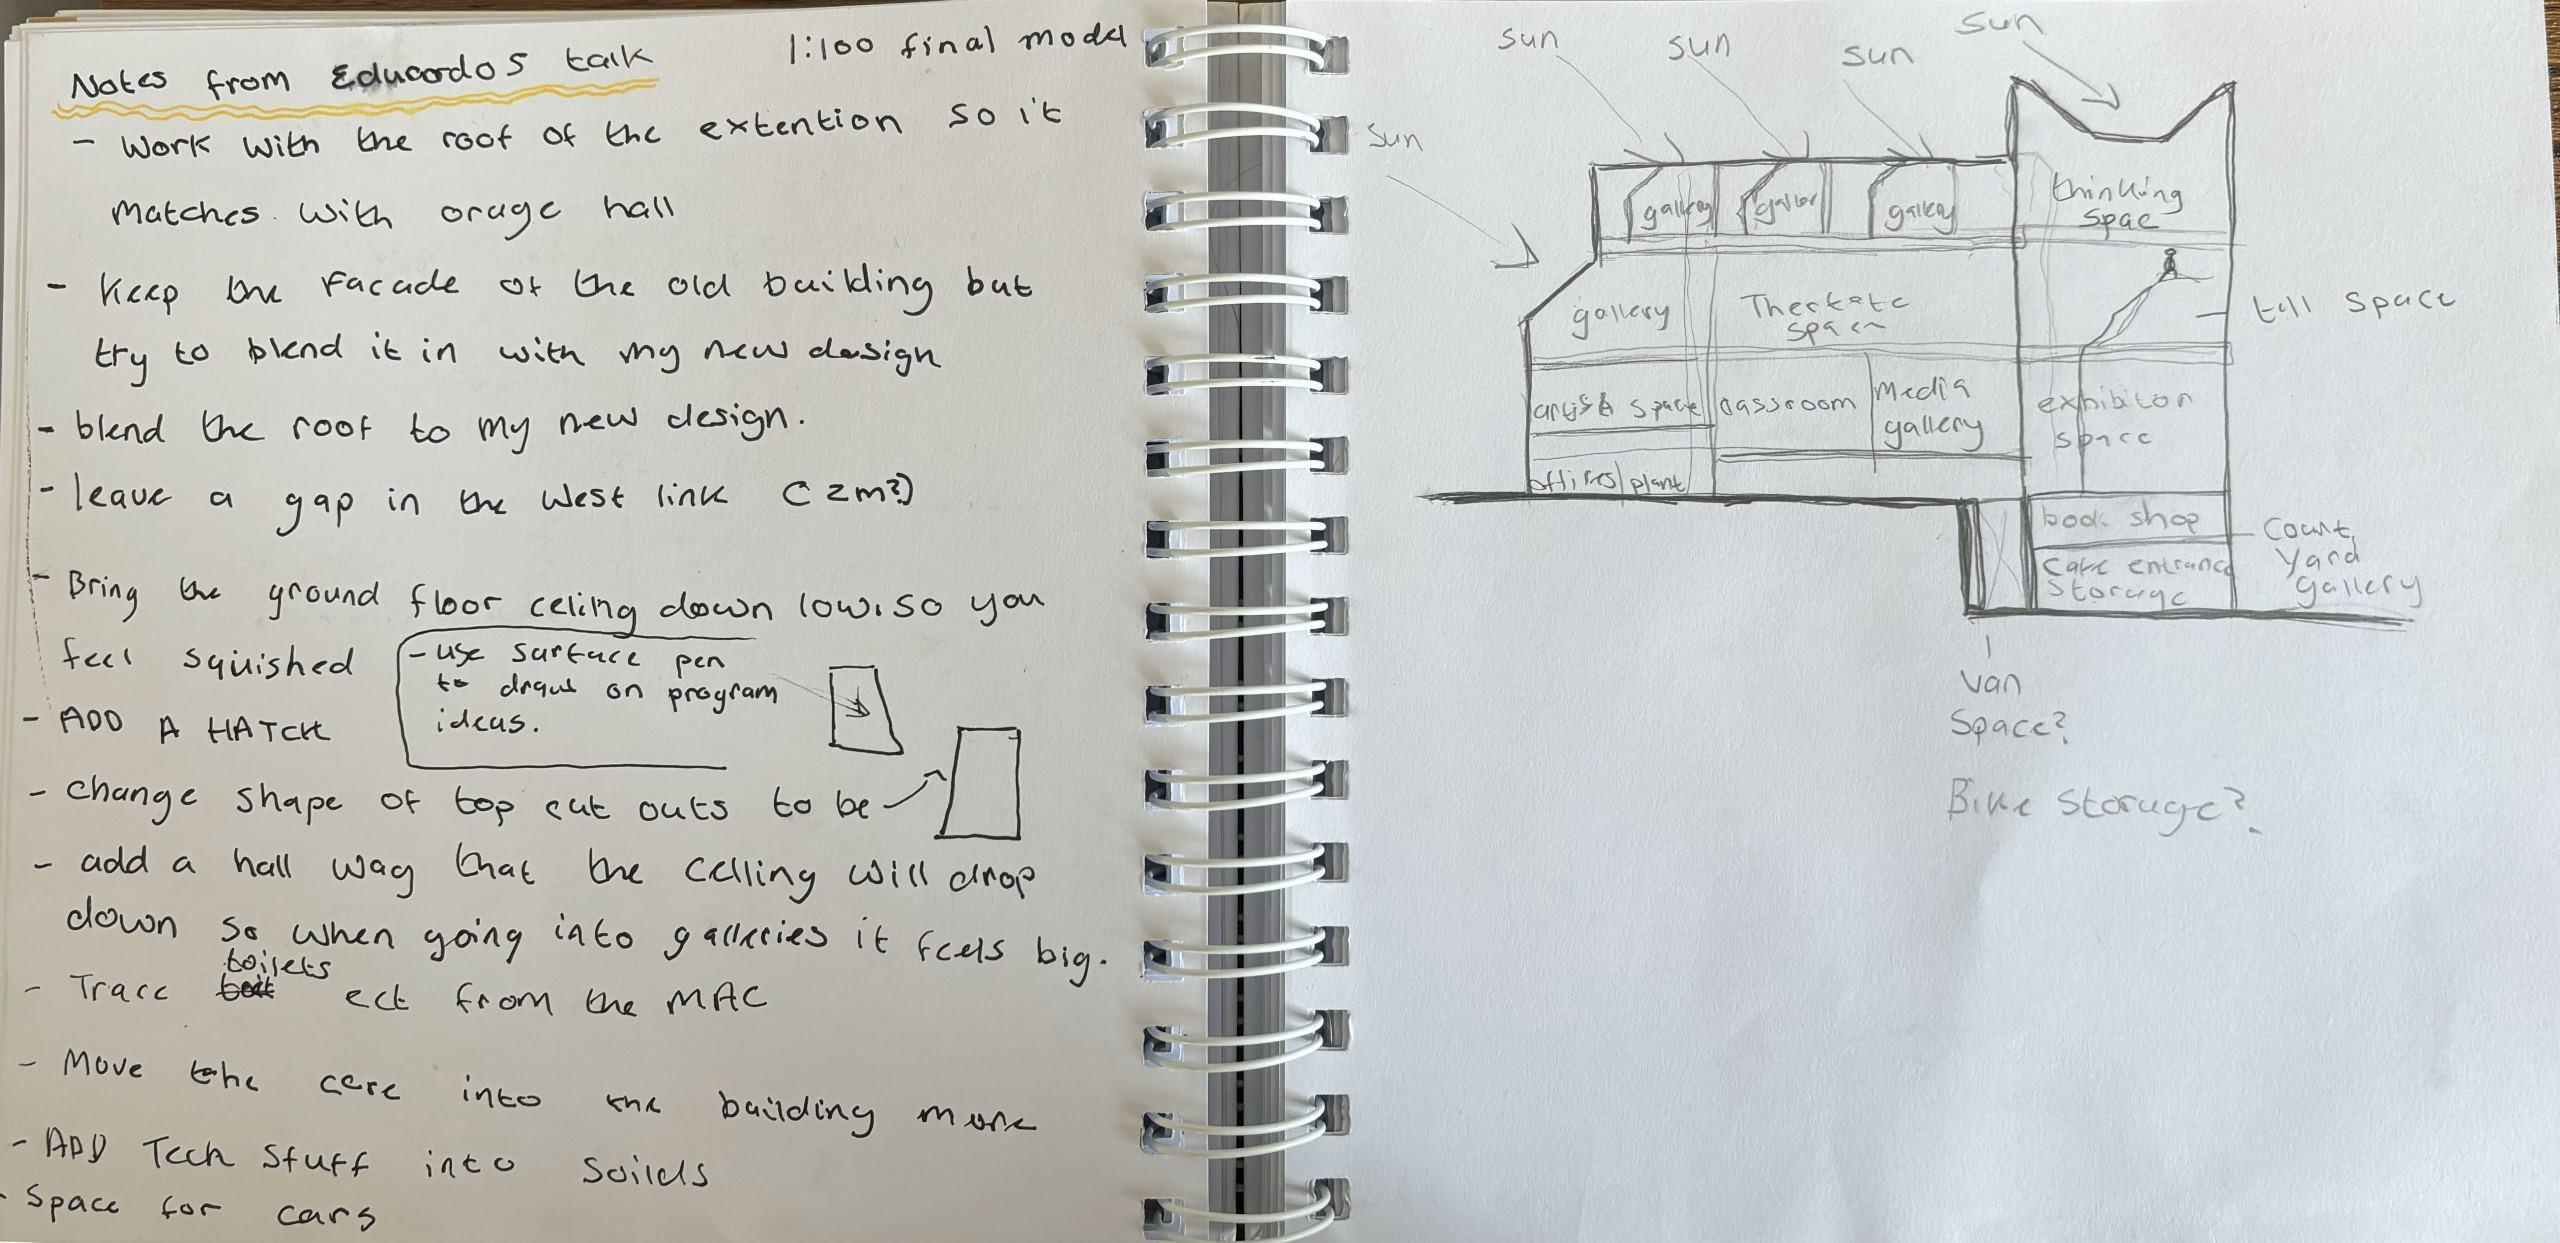 Notes from Educardos talk
1:100 final model
- Work with the roof of the extention so it
matches with orage hall
- Keep the facade of the old building but
try to blend it in with my new design
- blend the roof to my new design.
- leave a gap in the west link (2m?)
- Bring the ground floor celing down low. so you
feel squished
- use surface pen
to draw on program
ideas.
- ADD A HATCH
- change shape of top cut outs to be
- add a hall way that the celling will drop
down so when going into galleries it feels big.
- Trace toilets ect from the MAC
- Move the into the building more
- ADD Tech Stuff into Soilds
- Space for cars
sun
sun
sun
sun
sun
gallery
galler
gallery
thinking
spac
gallery
Theatate
space
tall space
artist space
classroom
Media
gallery
exhibiton
space
offices/plant
book shop
cafe entrance
storage
Court
Yard
gallery
van
Space?
Bike Storage?